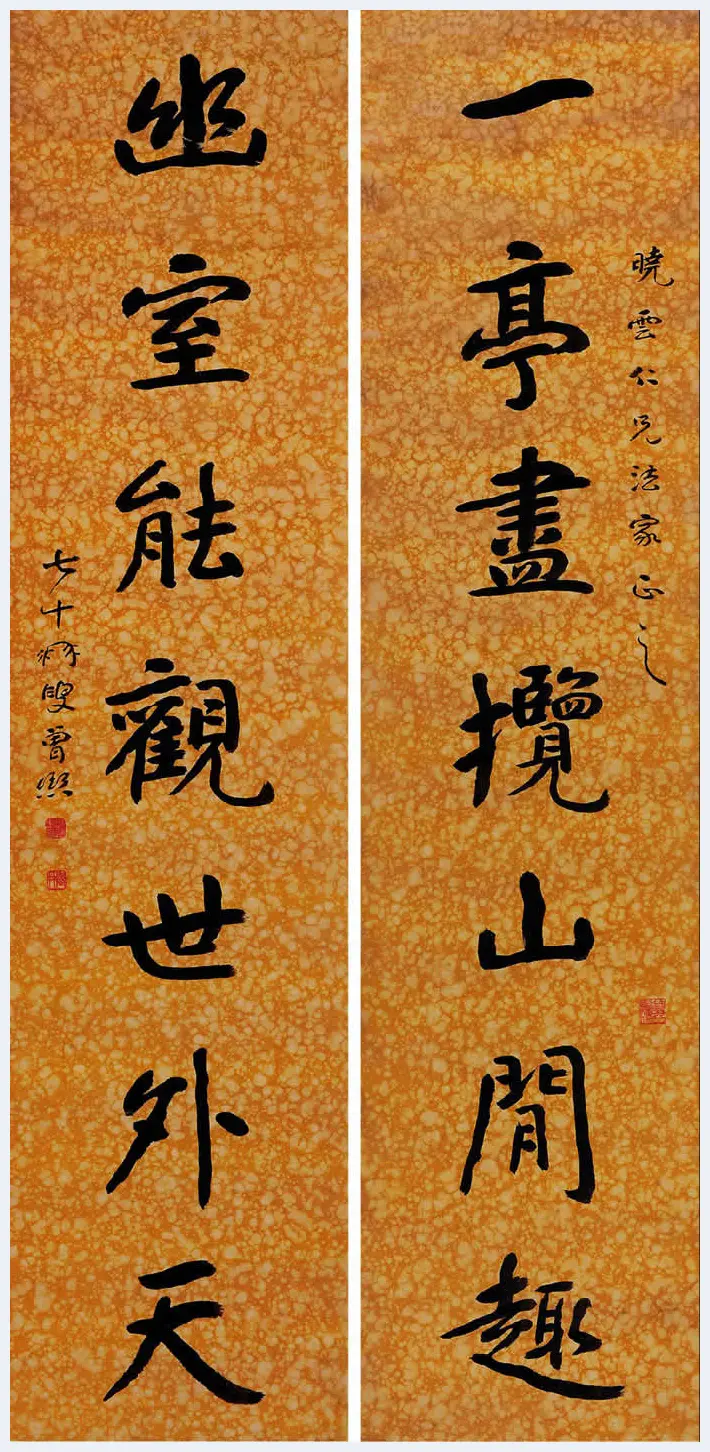 曉雲仁兄法家正之
一亭盡攬山間趣
幽室能觀世外天
七十衲叟曾熙